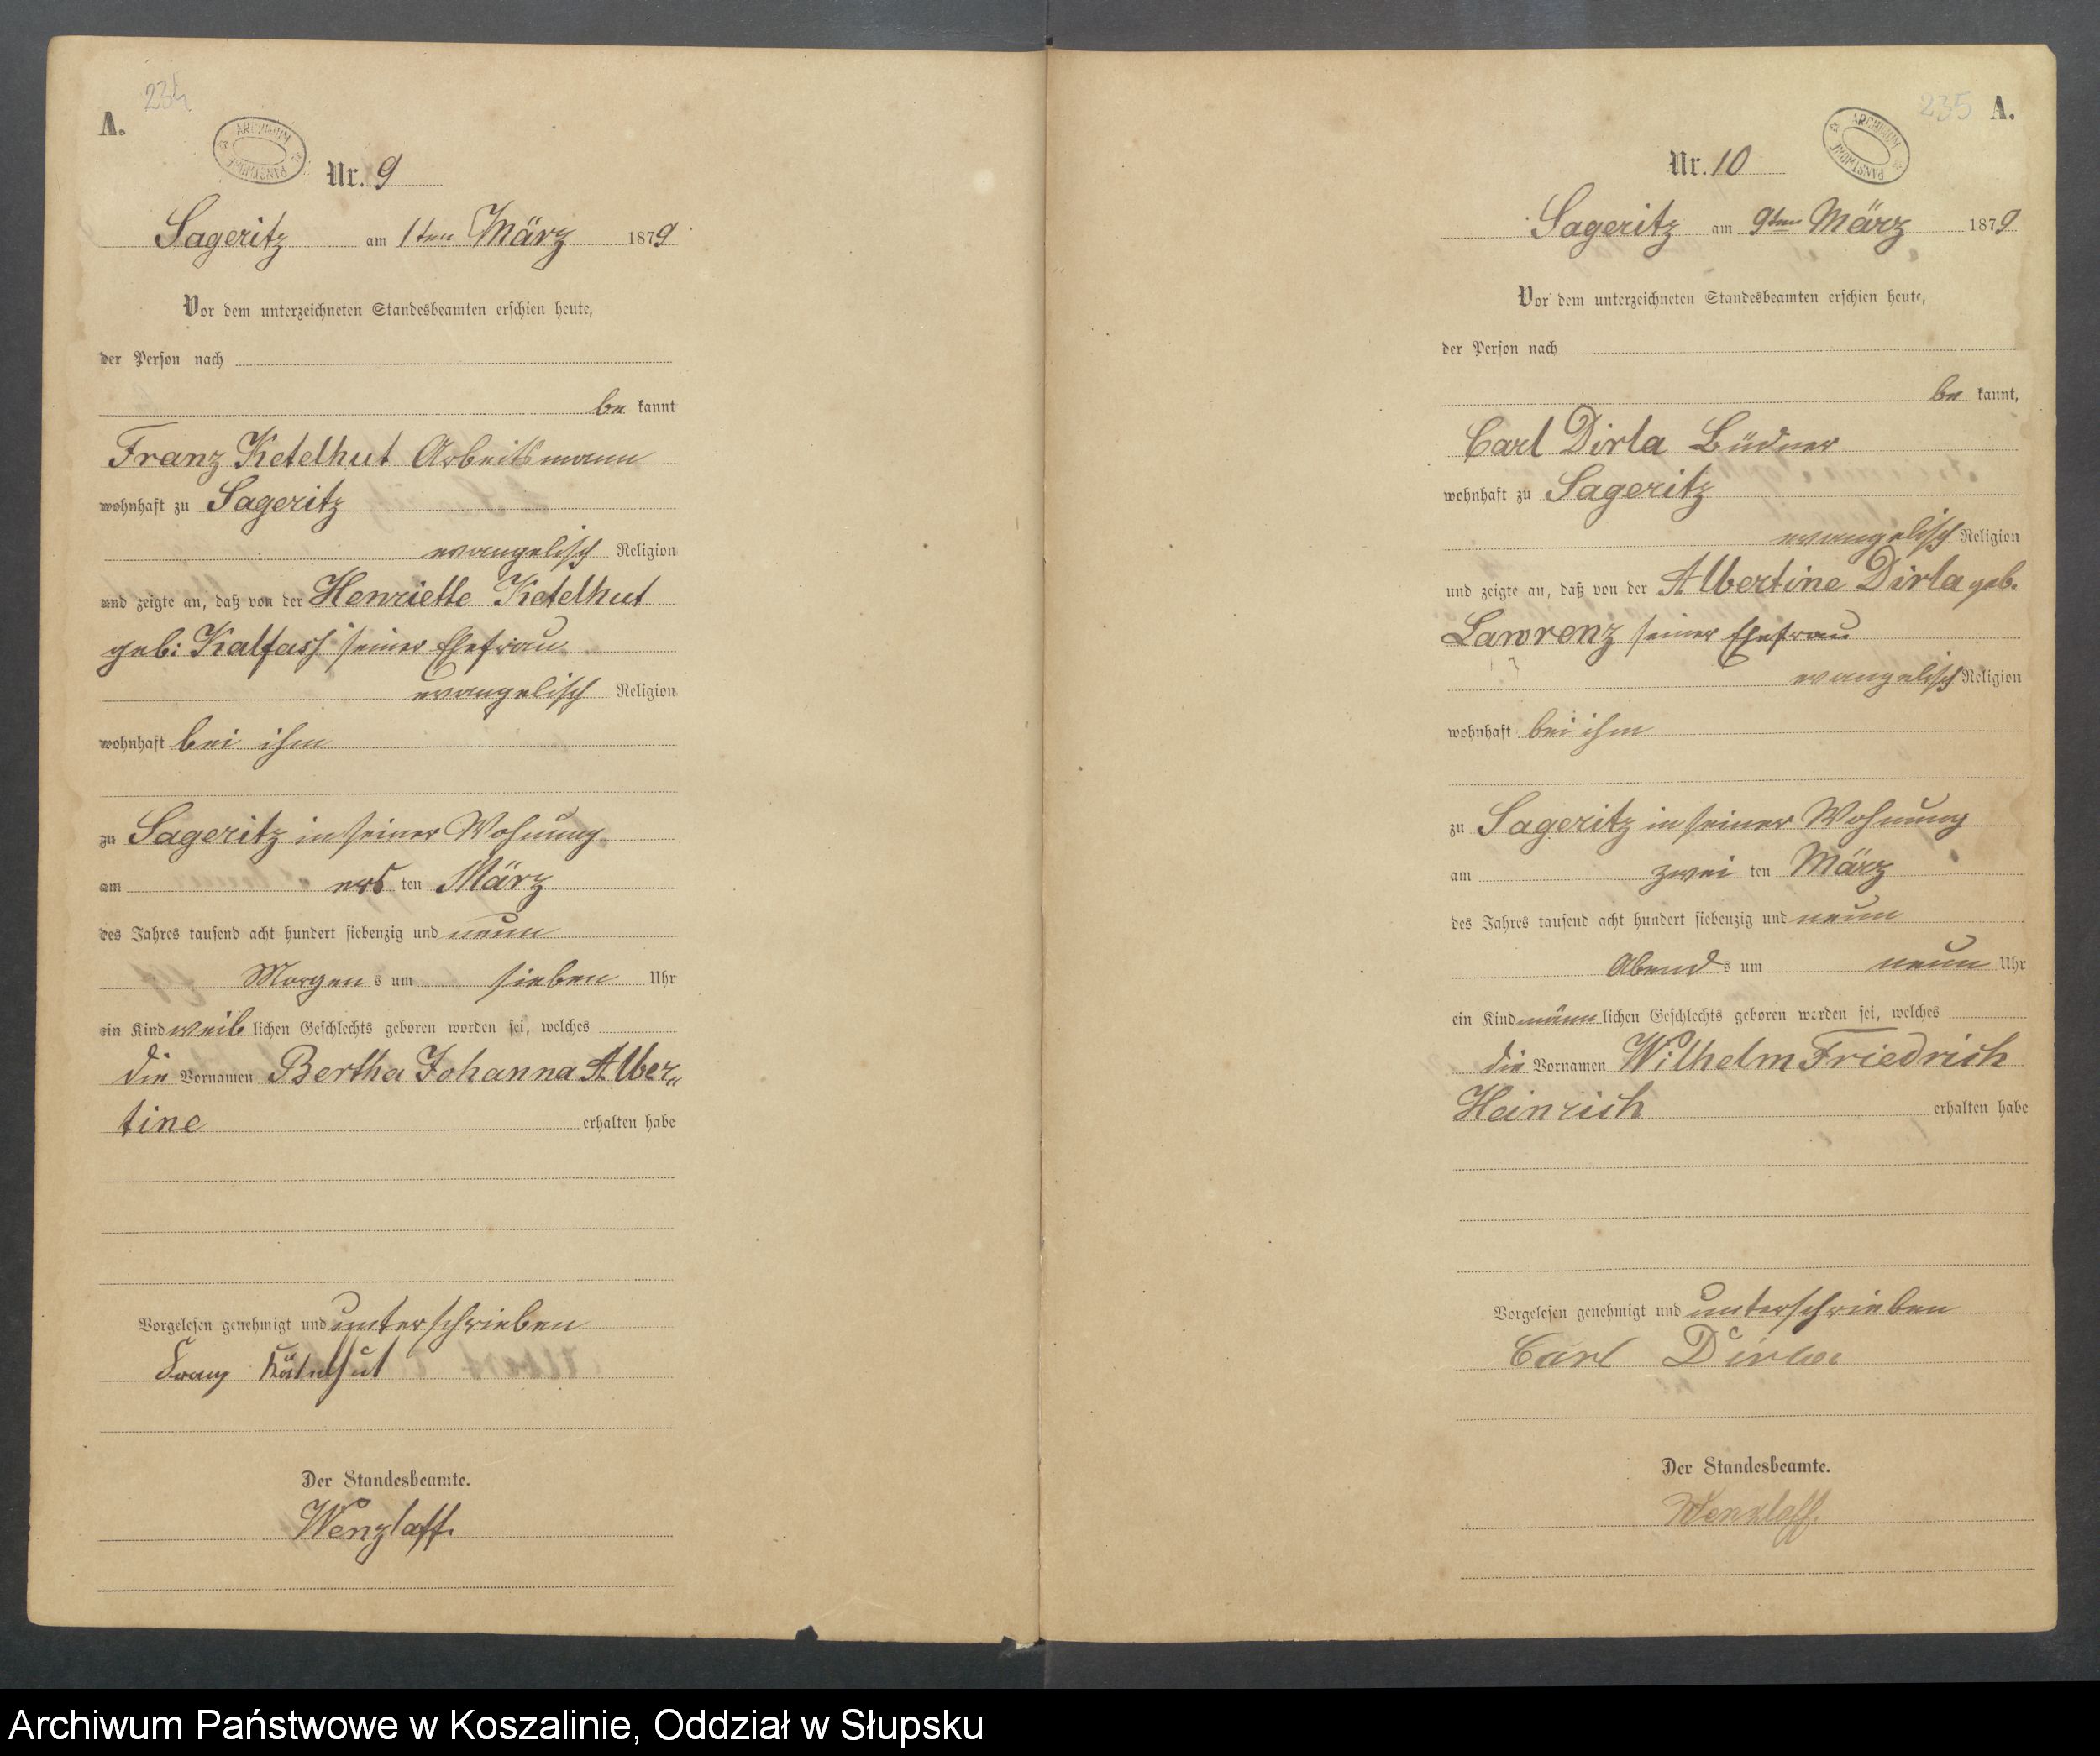 234
A.
ARCHIWUM PAŃSTWOWE
Nr. 9
Sageritz am 1ten März 1879
Vor dem unterzeichneten Standesbeamten erschien heute,
der Person nach
be kannt
Franz Ketelhut Arbeitsmann
wohnhaft zu Sageritz
evangelisch Religion
und zeigte an, daß von der Henriette Ketelhut
geb: Kalfass seiner Ehefrau
evangelisch Religion
wohnhaft bei ihm
zu Sageritz in seiner Wohnung
am ers ten März
des Jahres tausend acht hundert siebenzig und neun
Morgen s um sieben Uhr
ein Kind weib lichen Geschlechts geboren worden sei, welches
die Vornamen Bertha Johanna Alber„
tine erhalten habe
Vorgelesen genehmigt und unterschrieben
Franz
Der Standesbeamte.
Wenzlaff.
235 A.
ARCHIWUM PAŃSTWOWE
Nr. 10
Sageritz am 9ten März 1879
Vor dem unterzeichneten Standesbeamten erschien heute,
der Person nach
be kannt,
Carl Dirla Büdner
wohnhaft zu Sageritz
evangelisch Religion
und zeigte an, daß von der Albertine Dirla geb.
Lawrenz seiner Ehefrau
evangelisch Religion
wohnhaft bei ihm
zu Sageritz in seiner Wohnung
am zwei ten März
des Jahres tausend acht hundert siebenzig und neun
Abend s um neun Uhr
ein Kind männ lichen Geschlechts geboren worden sei, welches
die Vornamen Wilhelm Friedrich
Heinrich erhalten habe
Vorgelesen genehmigt und unterschrieben
Carl Dirla
Der Standesbeamte.
Wenzlaff.
Archiwum Państwowe w Koszalinie, Oddział w Słupsku